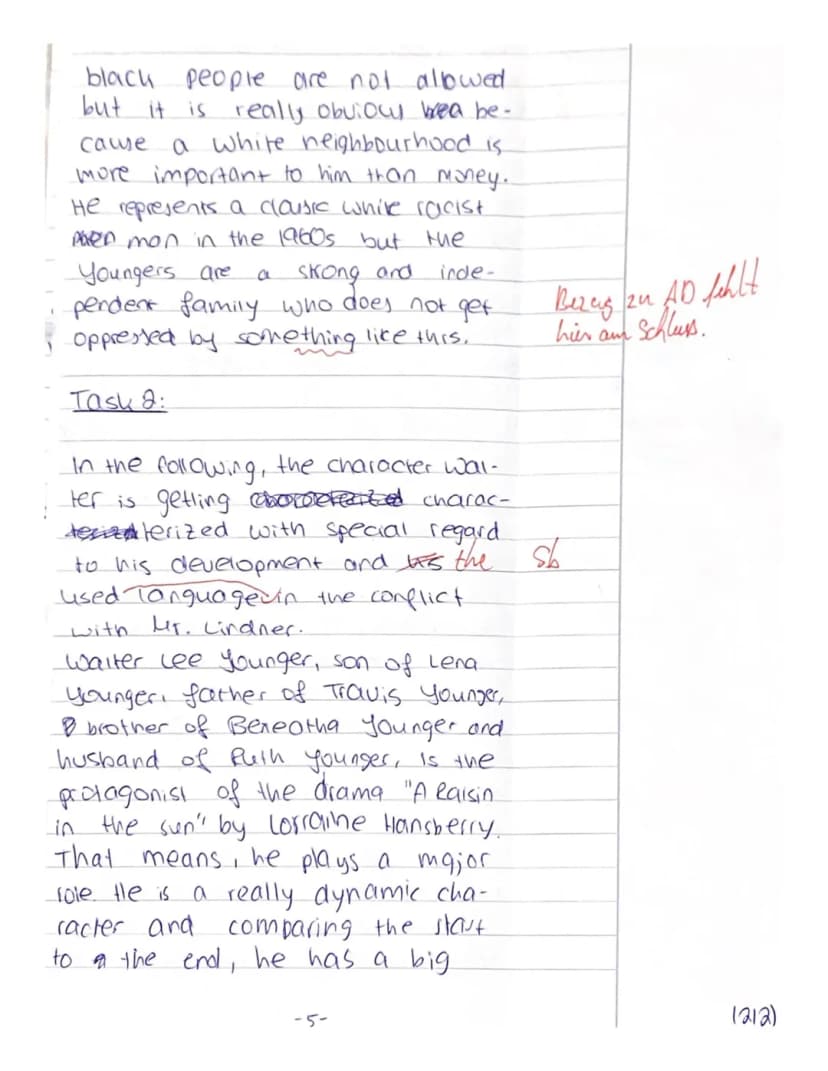 black people are not allowed
but it is really obvious be-
cause a white neighbourhood is
more important to him than money.
He represents a classic white racist
man in the 1960s but the
Youngers are a strong and inde-
pendent family who does not get
oppressed by something like this.
Bezug zu AD fehlt
hier am Schluss.
Task 2:
In the following, the character Wal-
ter is getting charac-
terized with special regard
to his development and the
Sb
used language in the conflict
with Mr. Lindner.
Walter Lee Younger, son of Lena
Younger, father of Travis Younger,
brother of Beneatha Younger and
husband of Ruth Younger, is the
protagonist of the drama "A Raisin
in the sun" by Lorraine Hansberry.
That means, he plays a major
role. He is a really dynamic cha-
racter and comparing the start
to the end, he has a big
-5-
(212)